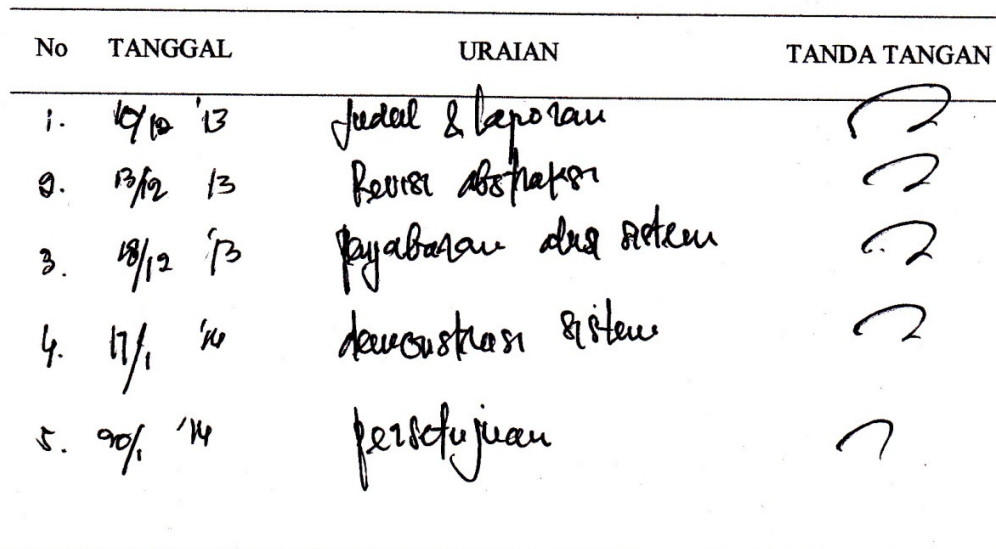 No TANGGAL URAIAN TANDA TANGAN
1. 10/12 '13 Judul & laporan
2. 13/12 13 Revisi abstraksi
3. 18/12 '13 penjabaran sistem
4. 17/1 '14 demonstrasi sistem
5. 20/1 '14 persetujuan